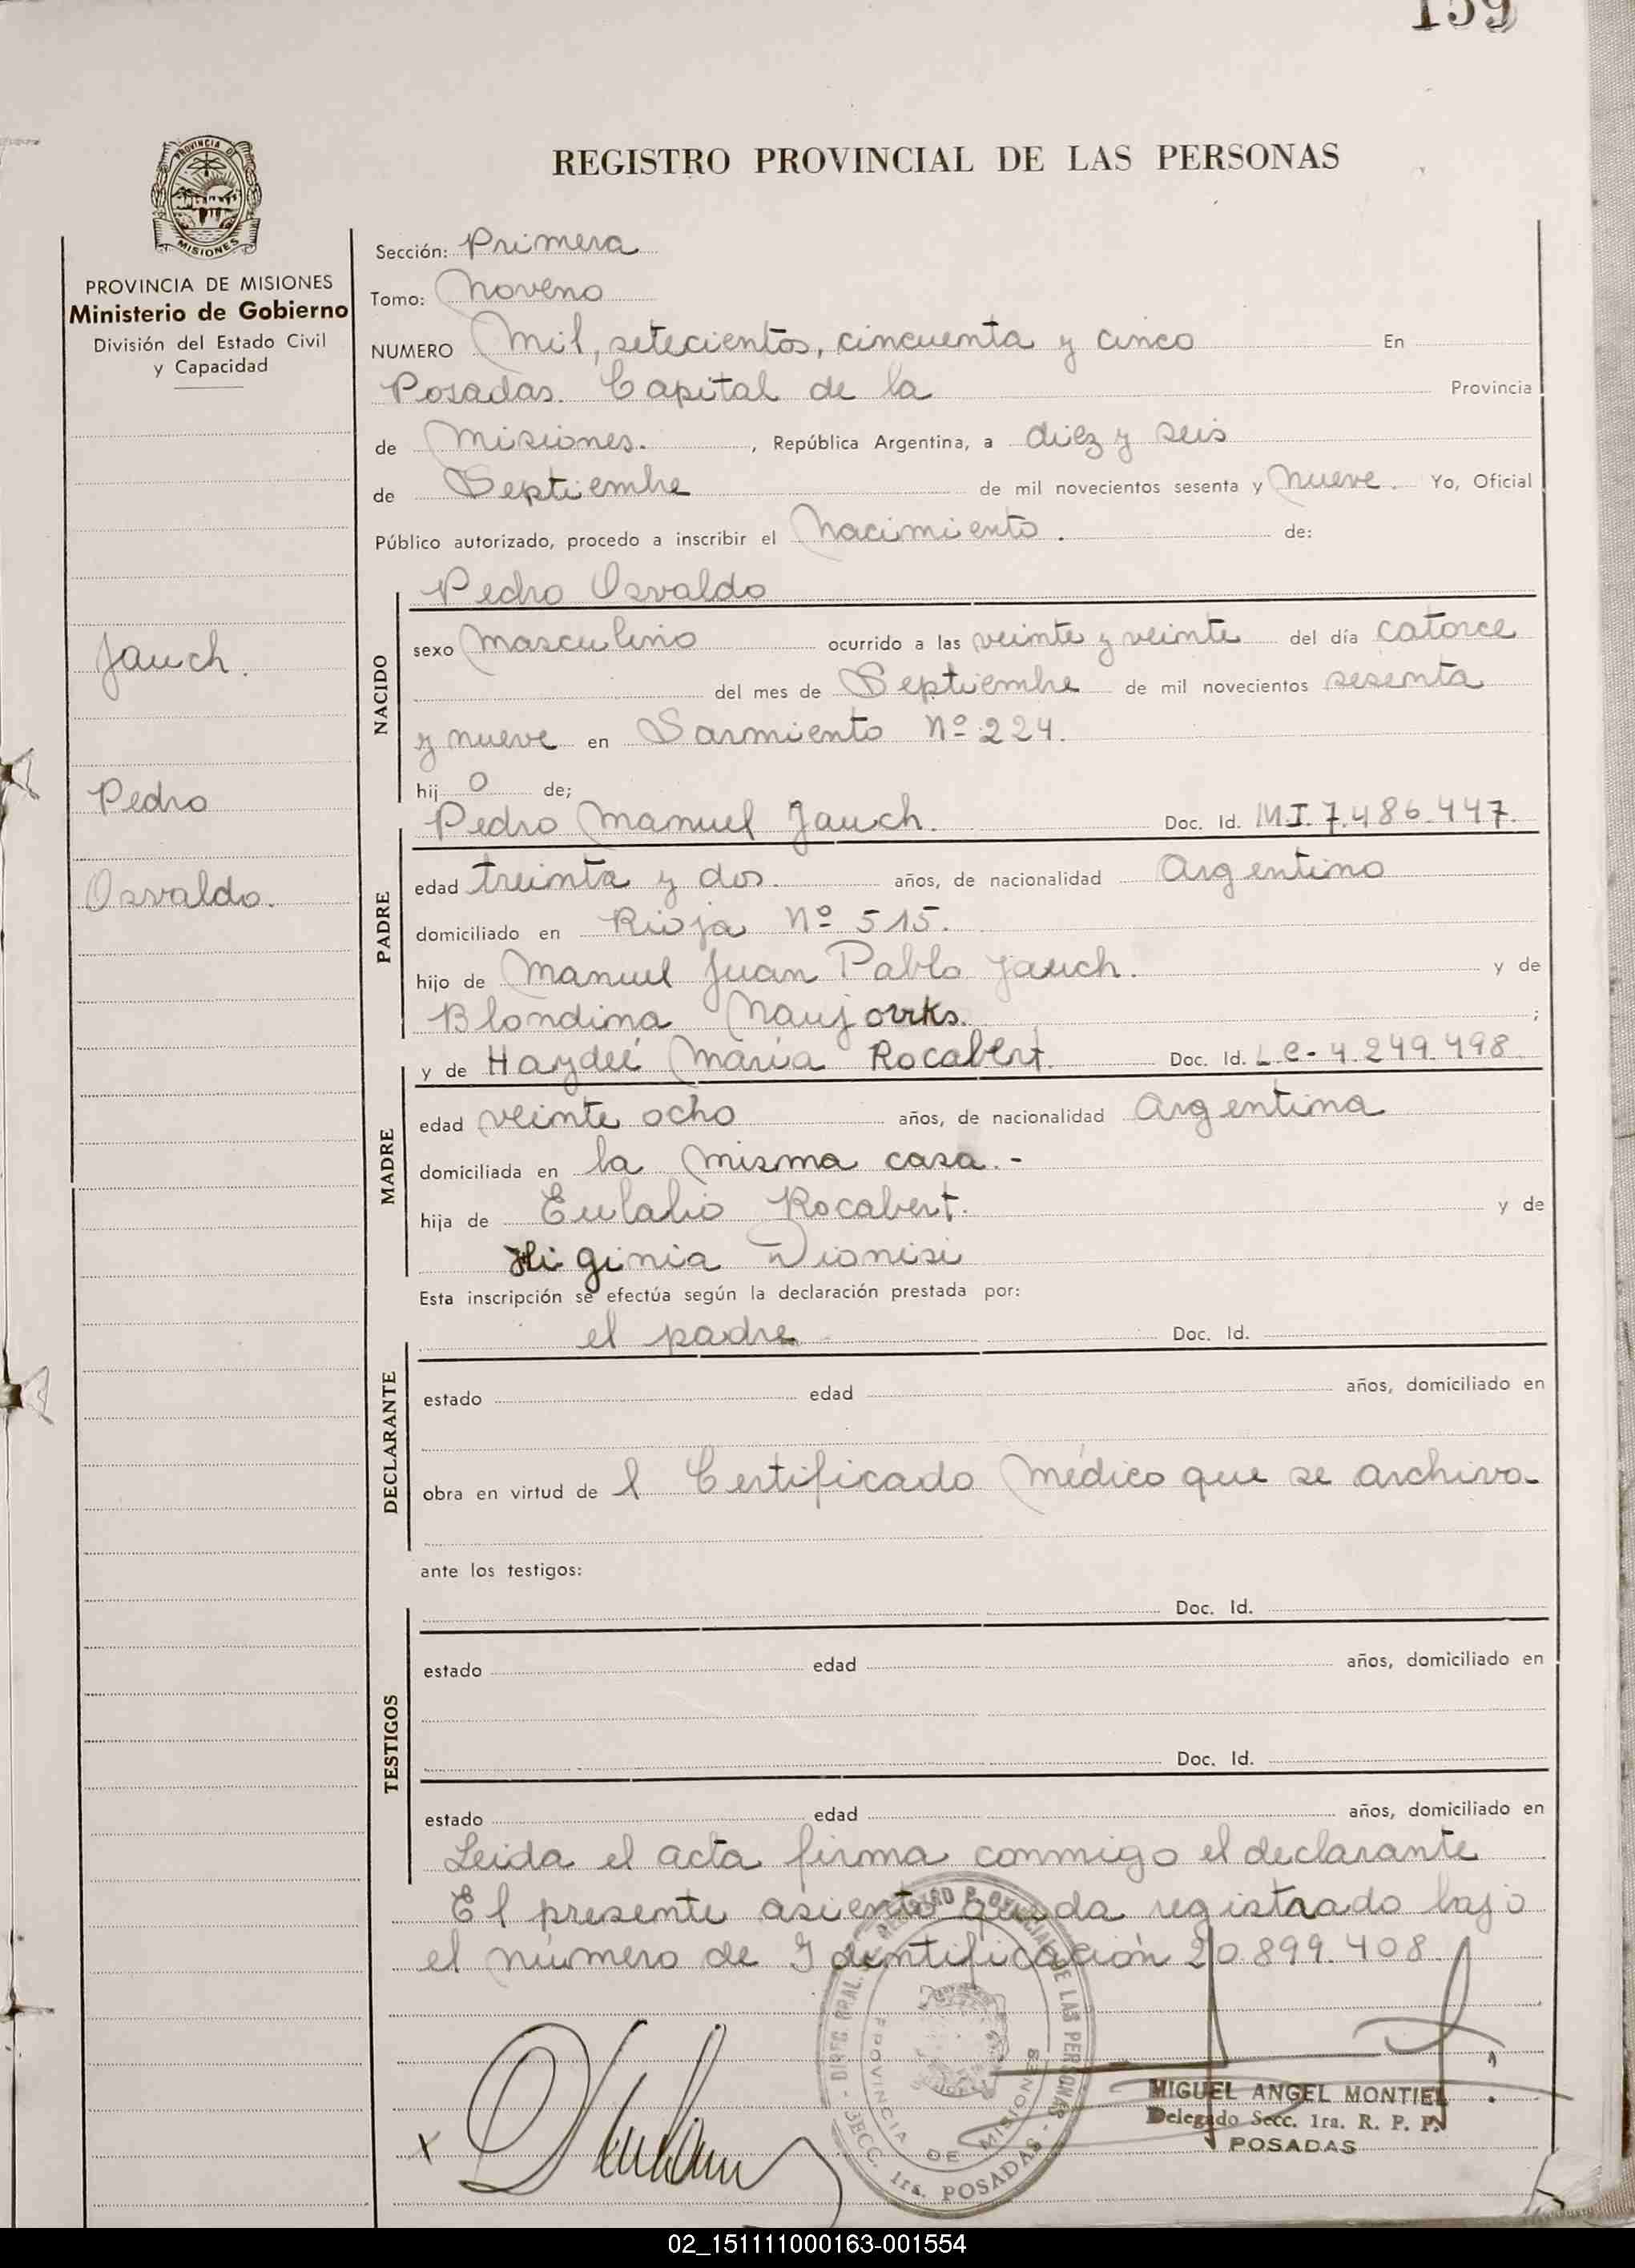 159
REGISTRO PROVINCIAL DE LAS PERSONAS
PROVINCIA DE MISIONES
Ministerio de Gobierno
División del Estado Civil
y Capacidad
Jauch.
Pedro
Osvaldo.
Sección: Primera
Tomo: Noveno
NUMERO Mil, setecientos, cincuenta y cinco En
Posadas. Capital de la Provincia
de Misiones. , República Argentina, a diez y seis
de Septiembre de mil novecientos sesenta y nueve. Yo, Oficial
Público autorizado, procedo a inscribir el Nacimiento. de:
Pedro Osvaldo
NACIDO
sexo masculino ocurrido a las veinte y veinte del día catorce
del mes de Septiembre de mil novecientos sesenta
y nueve en Sarmiento Nº 224.
hij o de;
Pedro Manuel Jauch. Doc. Id. M.I. 7.486.447.
PADRE
edad treinta y dos. años, de nacionalidad Argentino
domiciliado en Rioja Nº 515.
hijo de Manuel Juan Pablo Jauch. y de
Blondina Naujorks. ;
y de Haydeé María Rocabert. Doc. Id. L.C- 4.249.498
MADRE
edad veinte ocho años, de nacionalidad Argentina
domiciliada en la misma casa.-
hija de Eulalio Rocabert. y de
Higinia Dionisi
Esta inscripción se efectúa según la declaración prestada por:
el padre Doc. Id.
DECLARANTE
estado edad años, domiciliado en
obra en virtud de l Certificado Médico que se archiva-
ante los testigos:
Doc. Id.
TESTIGOS
estado edad años, domiciliado en
Doc. Id.
estado edad años, domiciliado en
Leida el acta firma conmigo el declarante
El presente asiento queda registrado bajo
el número de Identificación 20.899.408.
DIREC. GRAL. REGISTRO PROVINCIAL DE LAS PERSONAS - SECC. 1ra. POSADAS -
PROVINCIA DE MISIONES
MIGUEL ANGEL MONTIEL
Delegado Secc. 1ra. R. P. P.
POSADAS
x
02_151111000163-001554